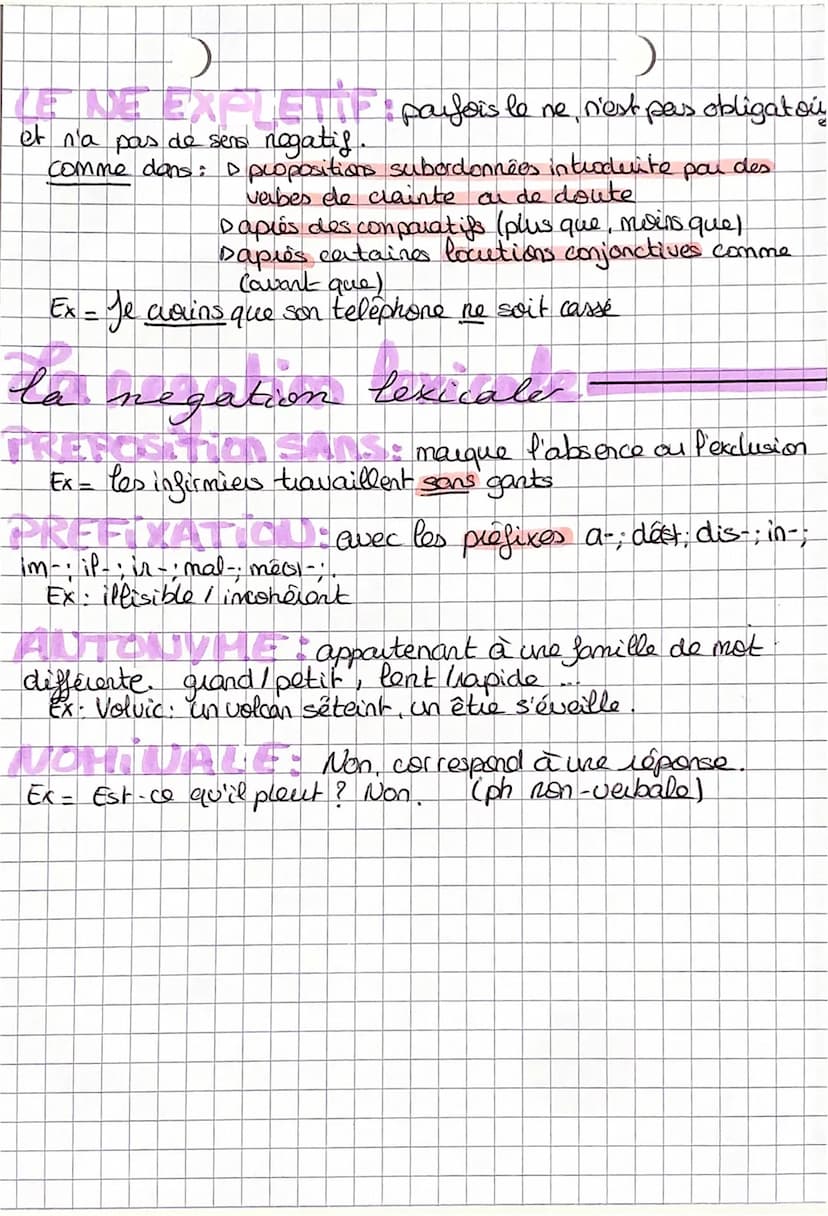 LE NE EXPLETIF : parfois le ne, n'est pas obligatoi
et n'a pas de sens negatif.
comme dans : ▷ propositions subordonnées introduite par des
verbes de crainte ou de doute
▷ après des comparatifs (plus que, moins que)
▷ après certaines locutions conjonctives comme
(avant que)
Ex = Je crains que son teléphone ne soit cassé
La negation lexicale
PREPOSITION SANS : marque l'absence ou l'exclusion
Ex = les infirmiers travaillent sans gants
PREFIXATION : avec les préfixes a-; dis-; in-;
im-; il-; ir-; mal-;
Ex : illisible / incohérent
AUTONYME : appartenant à une famille de mot
différente. grand / petit, lent / rapide ...
Ex : Volvic : un volcan s'éteint, un être s'éveille.
NOMINALE : Non, correspond à une réponse.
Ex = Est-ce qu'il pleut ? Non. (ph non-verbale)